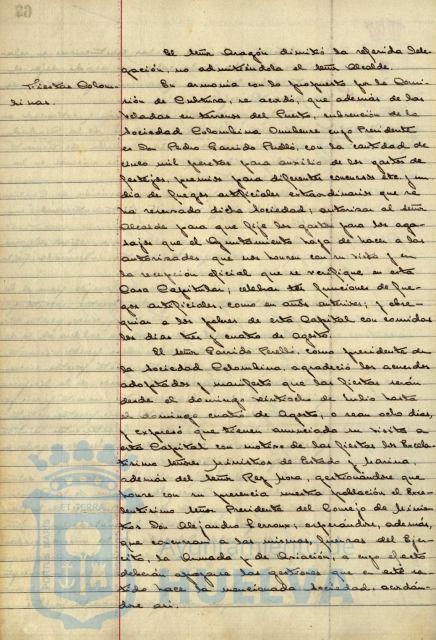 El señor Aragón dimitió la referida dele-
gación, no admitiéndola el señor Alcalde.
Fiestas Colom-
binas.
En armonía con lo propuesto por la Comi-
sión de Cultura, se acordó, que además de las
veladas en terrenos del Puerto, subvención de la
Sociedad Colombina Onubense cuyo Presidente
es Don Pedro Garrido Perelló, con la cantidad de
cinco mil pesetas para auxilio de los gastos de
festejos, premios para diferentes concursos etc, y un
día de fuegos artificiales extraordinarios que se
ha reservado dicha Sociedad; autorizar al señor
Alcalde para que fije los gastos para los aga-
sajos que el Ayuntamiento haya de hacer a las
autoridades que nos honren con su visita y en
la recepción oficial que se verifique en esta
Casa Capitular; celebrar tres funciones de fue-
gos artificiales, como en años anteriores; y obse-
quiar a los pobres de esta Capital con comidas
los días tres y cuatro de Agosto.
El señor Garrido Perelló, como presidente de
la Sociedad Colombina, agradeció los acuerdos
adoptados y manifestó que las fiestas serán
desde el domingo veintiocho de Julio hasta
el domingo cuatro de Agosto, o sean ocho días,
y expresó que tienen anunciada su visita a
esta Capital con motivo de las fiestas los Excelen-
tísimos señores Ministros de Estado y Marina,
además del señor Rey Mora, gestionándose que
honre con su presencia nuestra población el Exce-
lentísimo señor Presidente del Consejo de Minis-
tros Don Alejandro Lerroux; esperándose, además,
que concurran a las mismas, fuerzas del Ejér-
cito, la Armada y de Aviación, a cuyo efecto
deberán apoyarse las gestiones que en este sen-
tido hace la mencionada Sociedad, acordán-
dose así.
HUELVA